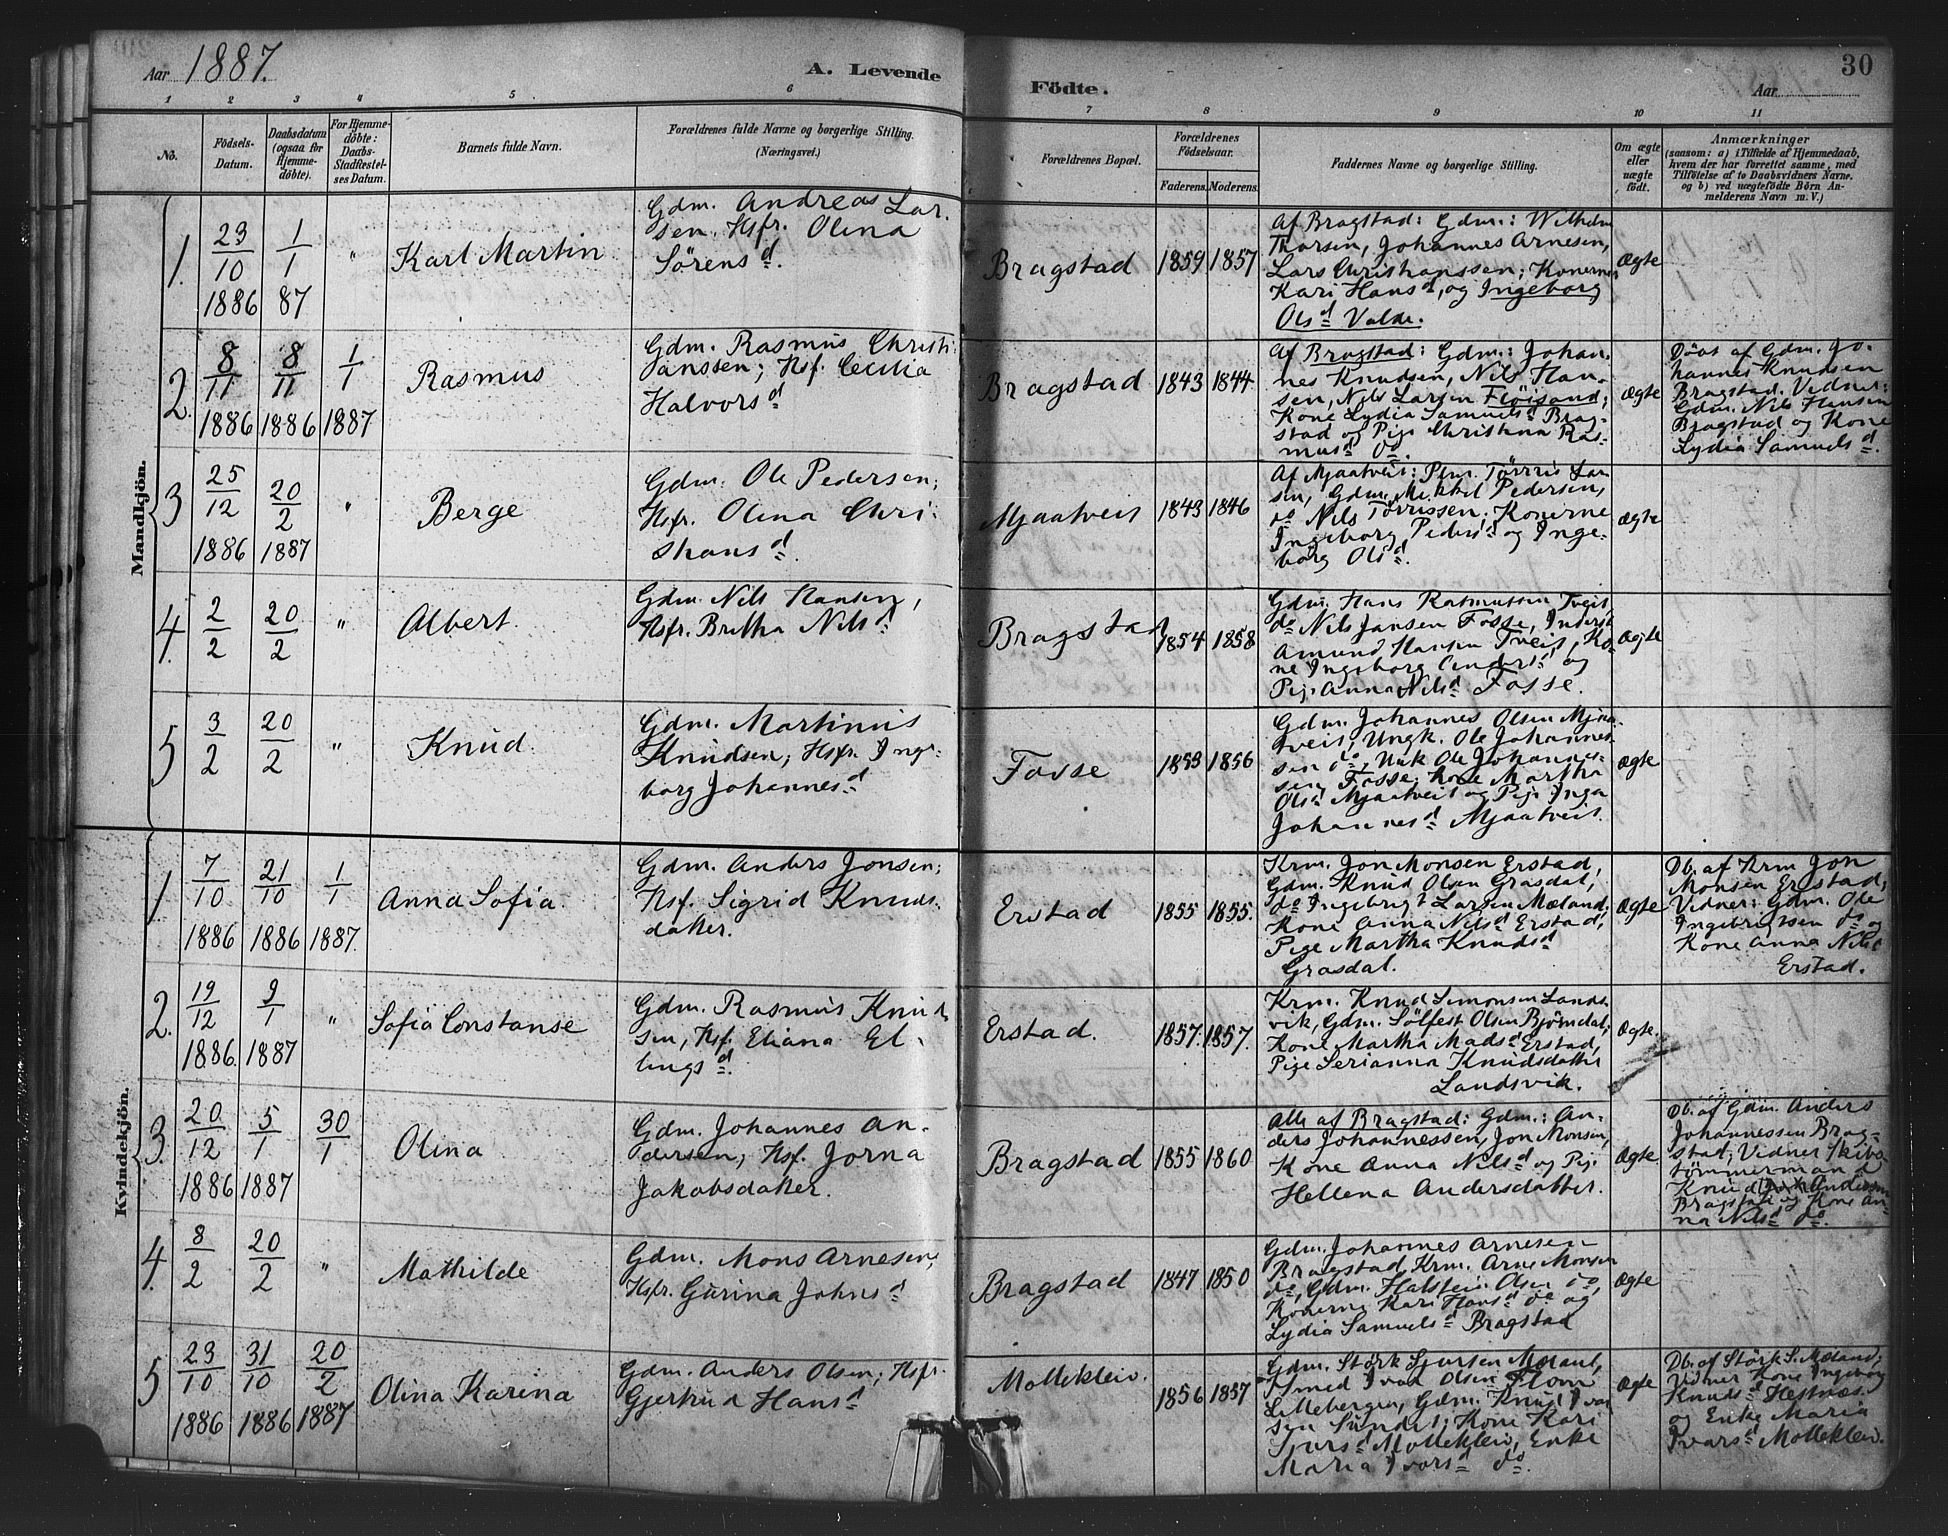 Aar 1887.
A. Levende
Födte.
Aar
30
1 2 3 4 5 6 7 8 9 10 11
No.
Födsels-
Datum.
Daabsdatum
(ogsaa for
Hjemme-
döbte).
For Hjemme-
döbte:
Daabs-
Stadfæstel-
ses Datum.
Barnets fulde Navn.
Forældrenes fulde Navne og borgerlige Stilling.
(Næringsvei.)
Forældrenes Bopæl.
Forældrenes
Födselsaar.
Faderens. Moderens.
Faddernes Navne og borgerlige Stilling.
Om ægte
eller
uægte
födt.
Anmærkninger
(saasom: a) i Tilfælde af Hjemmedaab,
hvem der har forrettet samme, med
Tilföielse af to Daabsvidners Navne,
og b) ved uægtefödte Börn An-
melderens Navn m. V.)
Mandkjön.
1. 23/10 1886 1/1 87 " Karl Martin
Gdm. Andreas Lar-
sen. Hsfr. Olina
Sørens d.
Bragstad 1859 1857
Af Bragstad: Gdm.: Wilhelm
Thorsen, Johannes Arnesen,
Lars Christianssen; Konerne
Kari Hans d, og Ingeborg
Ols d Valde.
Ægte
2. 8/11 1886 8/11 1886 1/1 1887 Rasmus
Gdm. Rasmus Christi-
anssen; Hsf. Cecilia
Halvors d
Bragstad 1843 1844
Af Bragstad: Gdm.: Johan-
nes Knudsen, Nils Han-
sen, Nils Larsen Fløisand;
Kone Lydia Samuels d Brag-
stad og Pige Christina Ras-
mus d do.
Ægte
Døbt af Gdm. Jo-
hannes Knudsen
Bragstad. Vidner:
Gdm. Nils Hansen
Bragstad og Kone
Lydia Samuels d.
3 25/12 1886 20/2 1887 " Berge
Gdm. Ole Pedersen;
Hsfr. Olina Chri-
stians d.
Mjaatveit 1843 1846
Af Mjaatveit: Plm. Tørris Lar-
sen, Gdm. Mikkel Pedersen,
do Nils Tørrissen. Konerne
Ingeborg Peders d og Inge-
borg Ols d.
Ægte
4. 2/2 20/2 " Albert.
Gdm. Nils Hansen,
Hsfr. Britha Nils d
Bragstad 1854 1858
Gdm. Hans Rasmussen Tveit,
do Nils Jansen Fosse,
Amund Hansen Tveit, Ko-
ne Ingeborg Anders d og
Pige Anna Nils d Fosse.
Ægte
5 3/2 20/2 " Knud.
Gdm. Martinus
Knudsen; Hsfr. Inge-
borg Johannes d
Fosse 1853 1856
Gdm. Johannes Olsen Mjaa-
tveit, Ungk. Ole Johannes-
sen do, Unk Ole Johannes-
sen Fosse; Kone Martha
Ols d Mjaatveit og Pige Inga
Johannes d Mjaatveit.
Ægte
Kvindekjön.
1 7/10 1886 21/10 1886 1/1 1887. Anna Sofia.
Gdm. Anders Jonsen;
Hsf. Sigrid Knuds-
datter.
Erstad 1855 1855.
Krm. Jon Monsen Erstad,
Gdm. Knud Olsen Grasdal,
do Ingebrigt Larsen Mæland,
Kone Anna Nils d Erstad,
Pige Martha Knuds d
Grasdal.
Ægte
Db. af Krm Jon
Monsen Erstad;
Vidner: Gdm. Ole
Ingebrigtsen do og
Kone Anna Nils d
Erstad.
2. 19/12 1886. 9/1 1887 " Sofia Constanse
Gdm. Rasmus Knud-
sen, Hsf. Eliana El-
lings d.
Erstad. 1857. 1857.
Krm. Knud Simonsen Lands-
vik, Gdm. Sølfest Olsen Bjørndal;
Kone Martha Mads d Erstad,
Pige Serianna Knudsdatter
Landsvik.
Ægte.
3. 20/12 1886 5/1 1887 30/1 Olina
Gdm. Johannes An-
dersen; Hsf. Jorna
Jakobsdatter.
Bragstad 1855 1860
Alle af Bragstad: Gdm.: An-
ders Johannessen, Jon Monsen,
Kone Anna Nils d og Pige
Hellena Andersdatter.
Ægte.
Db. af Gdm. Anders
Johannessen Brag-
stad; Vidner Skibs-
tømmermand
Knud Andersen
Bragstad og Kone An-
na Nils d do.
4. 8/2 20/2 " Mathilde
Gdm. Mons Arnesen;
Hsfr. Gurina Johns d
Bragstad 1847 1850
Gdm. Johannes Arnesen
Bragstad, Krm. Arne Monsen
do, Gdm. Halstein Olsen do,
Konerne Kari Hans d do og
Lydia Samuels d Bragstad
Ægte
5 23/10 1886 31/10 1886 20/2 1887 Olina Karina
Gdm. Anders Olsen; Hsfr.
Gjertrud Hans d
Mollekleiv. 1856 1857
Gdm. Størk Sjursen Mæland,
Smed Ivar Olsen Flom
Lillebergen, Gdm. Knud Ivar-
sen Sundet; Kone Kari
Sjurs d Mollekleiv, Enke
Maria Ivars d do.
Ægte
Db. af Størk S. Mæland;
Vidner Kone Ingeborg
Knuds d Hestnæs
og Enke Maria
Ivars d Mollekleiv.